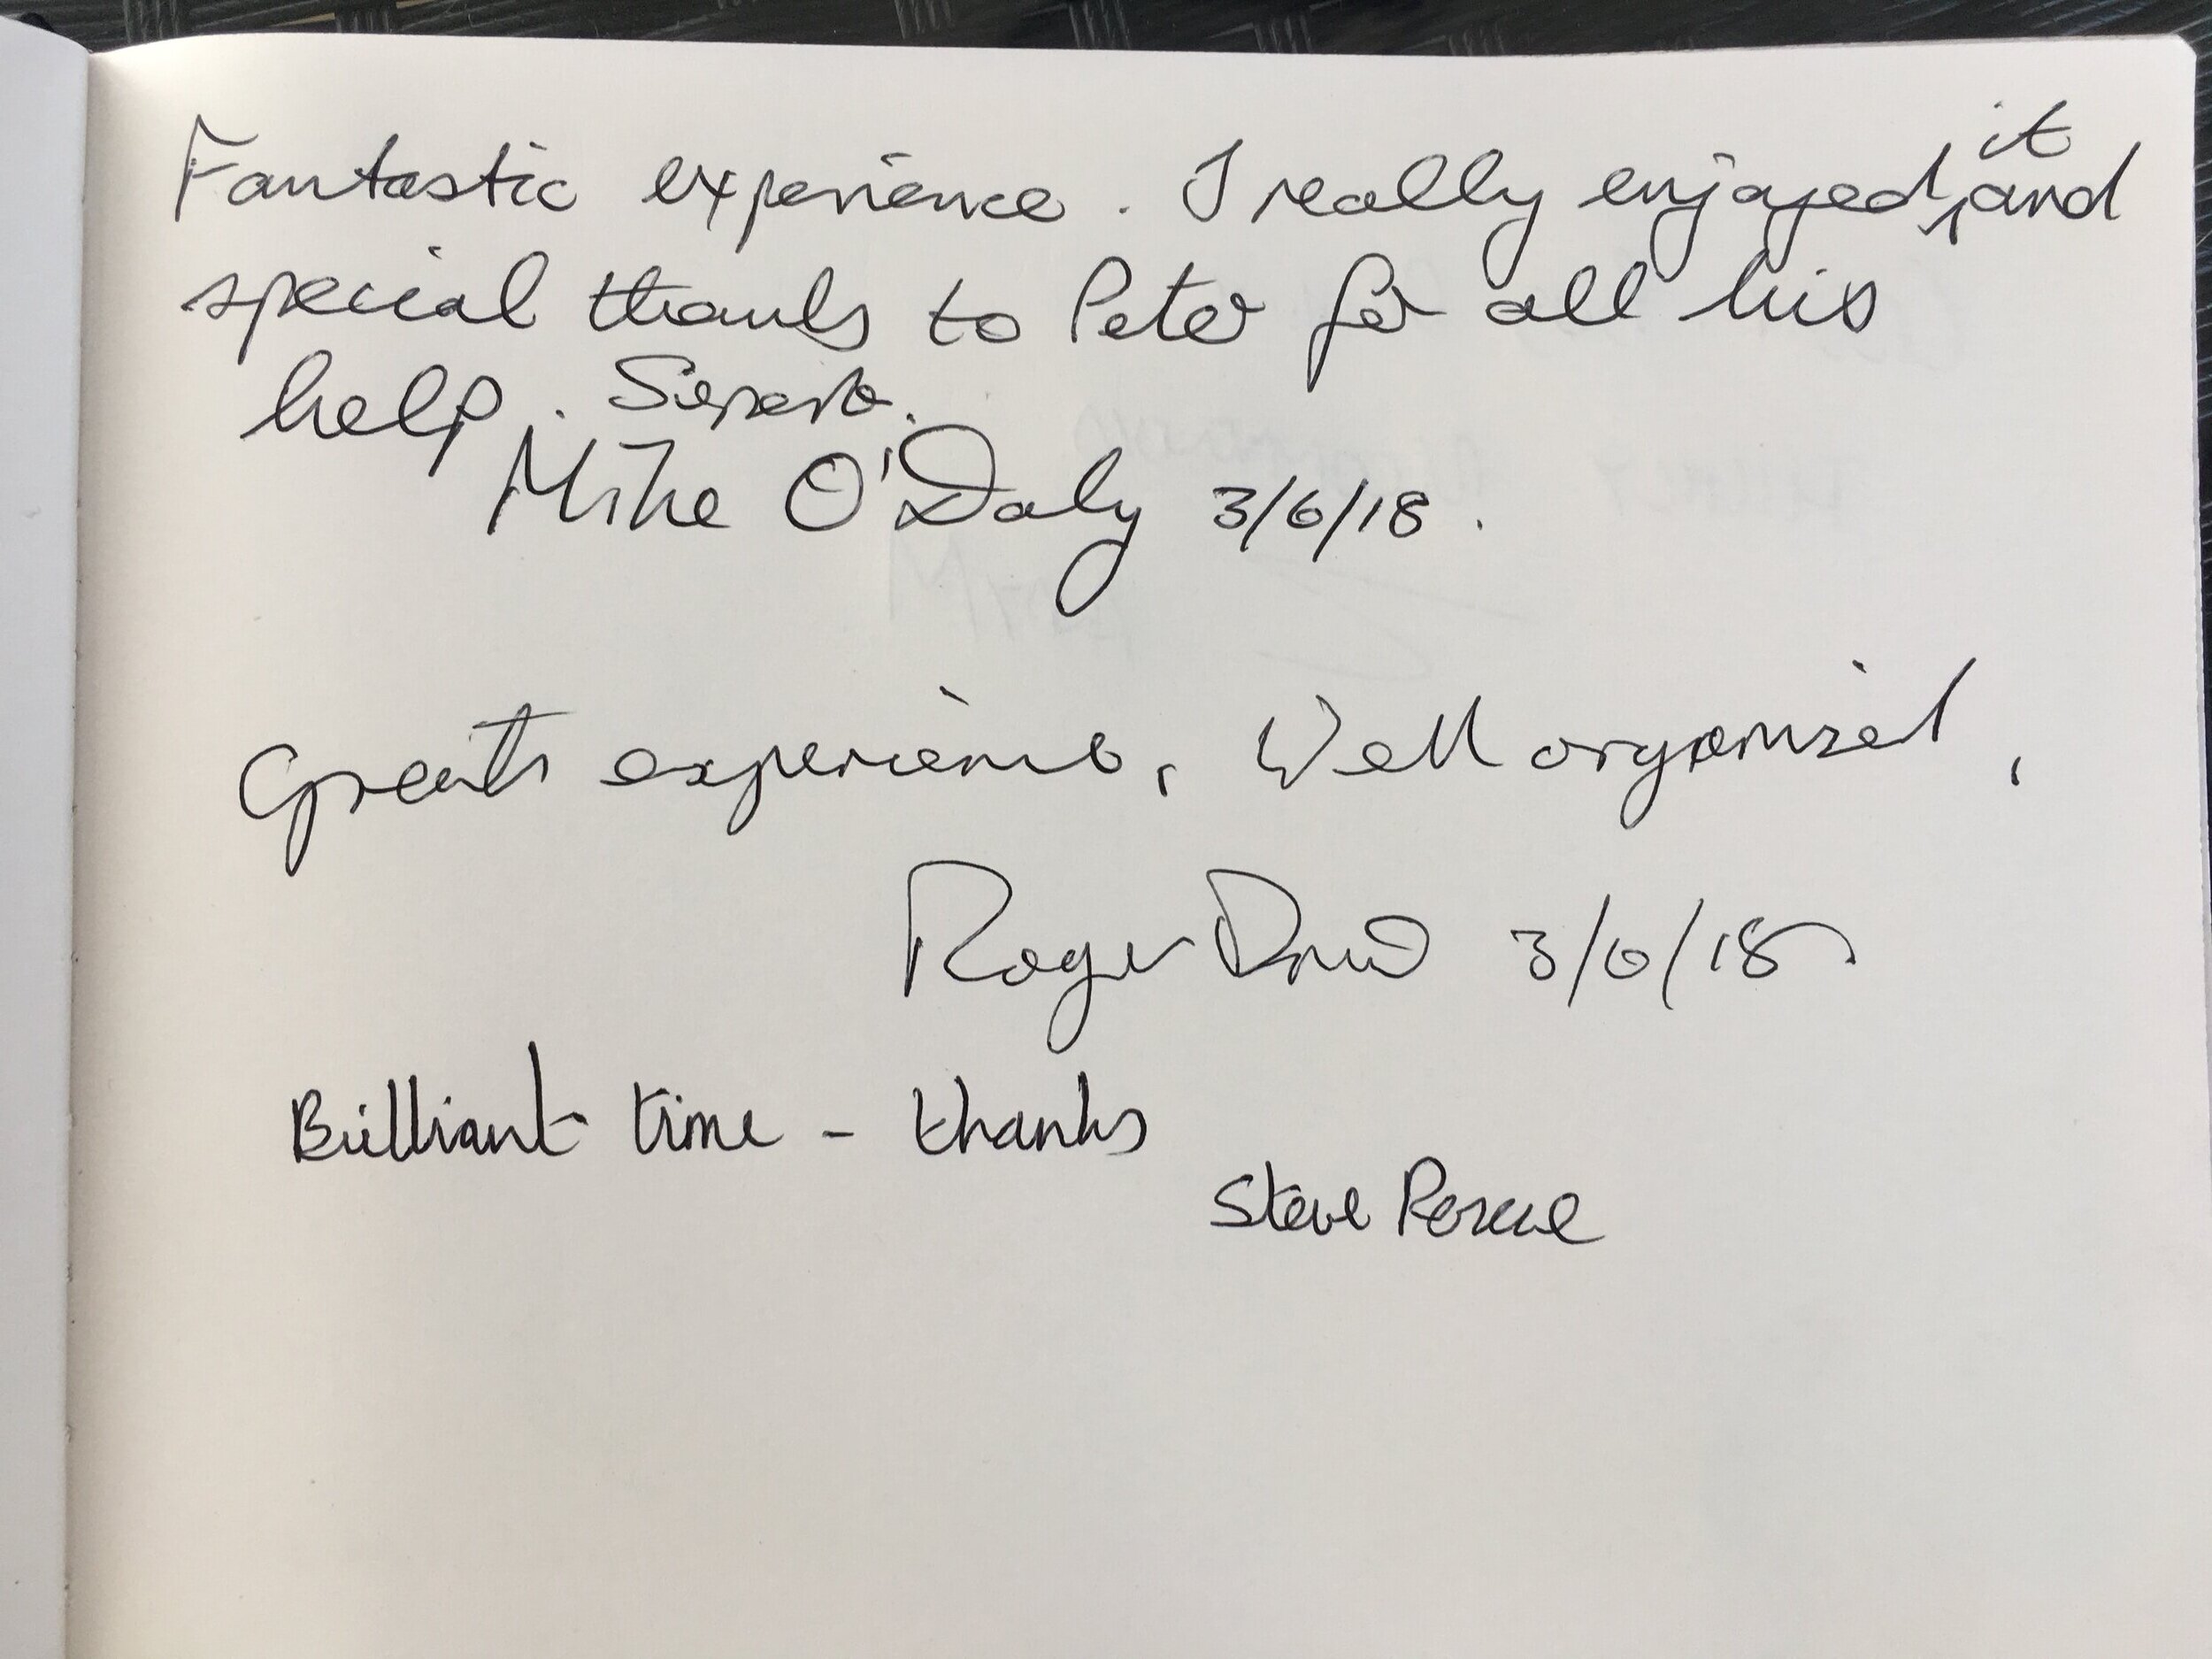 Fantastic experience. I really enjoyed it and
special thanks to Peter for all his
help. Superb.
Mike O'Daly 3/6/18.
Great experience, Well organised,
Roger 3/6/18
Brilliant time - thanks
Steve